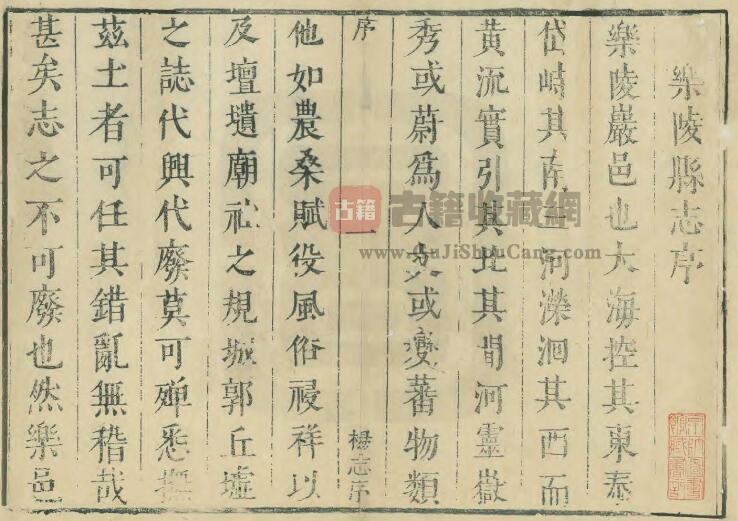 樂陵縣志序
樂陵巖邑也大海控其東泰
岱峙其南河瀠洄其西而
黃流實引其北其間河靈嶽
秀或蔚爲人文或變蕃物類
序 一 楊志序
他如農桑賦役風俗祲祥以
及壇壝廟祀之規城郭丘墟
之誌代興代廢莫可殫悉撫
茲土者可任其錯亂無稽哉
甚矣志之不可廢也然樂邑
古籍 古籍收藏網
www.GuJiShouCang.com